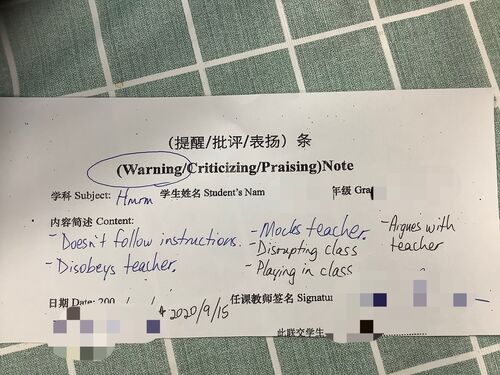 (提醒/批评/表扬) 条
(Warning/Criticizing/Praising)Note
学科 Subject: Hmrm 学生姓名 Student's Nam 年级 Gra
内容简述 Content:
- Doesn't follow instructions. - Mocks teacher. - Argues with teacher
- Disobeys teacher. - Disrupting class
- Playing in class
日期 Date: 200 / / 2020/9/15 任课教师签名 Signatur
此联交学生